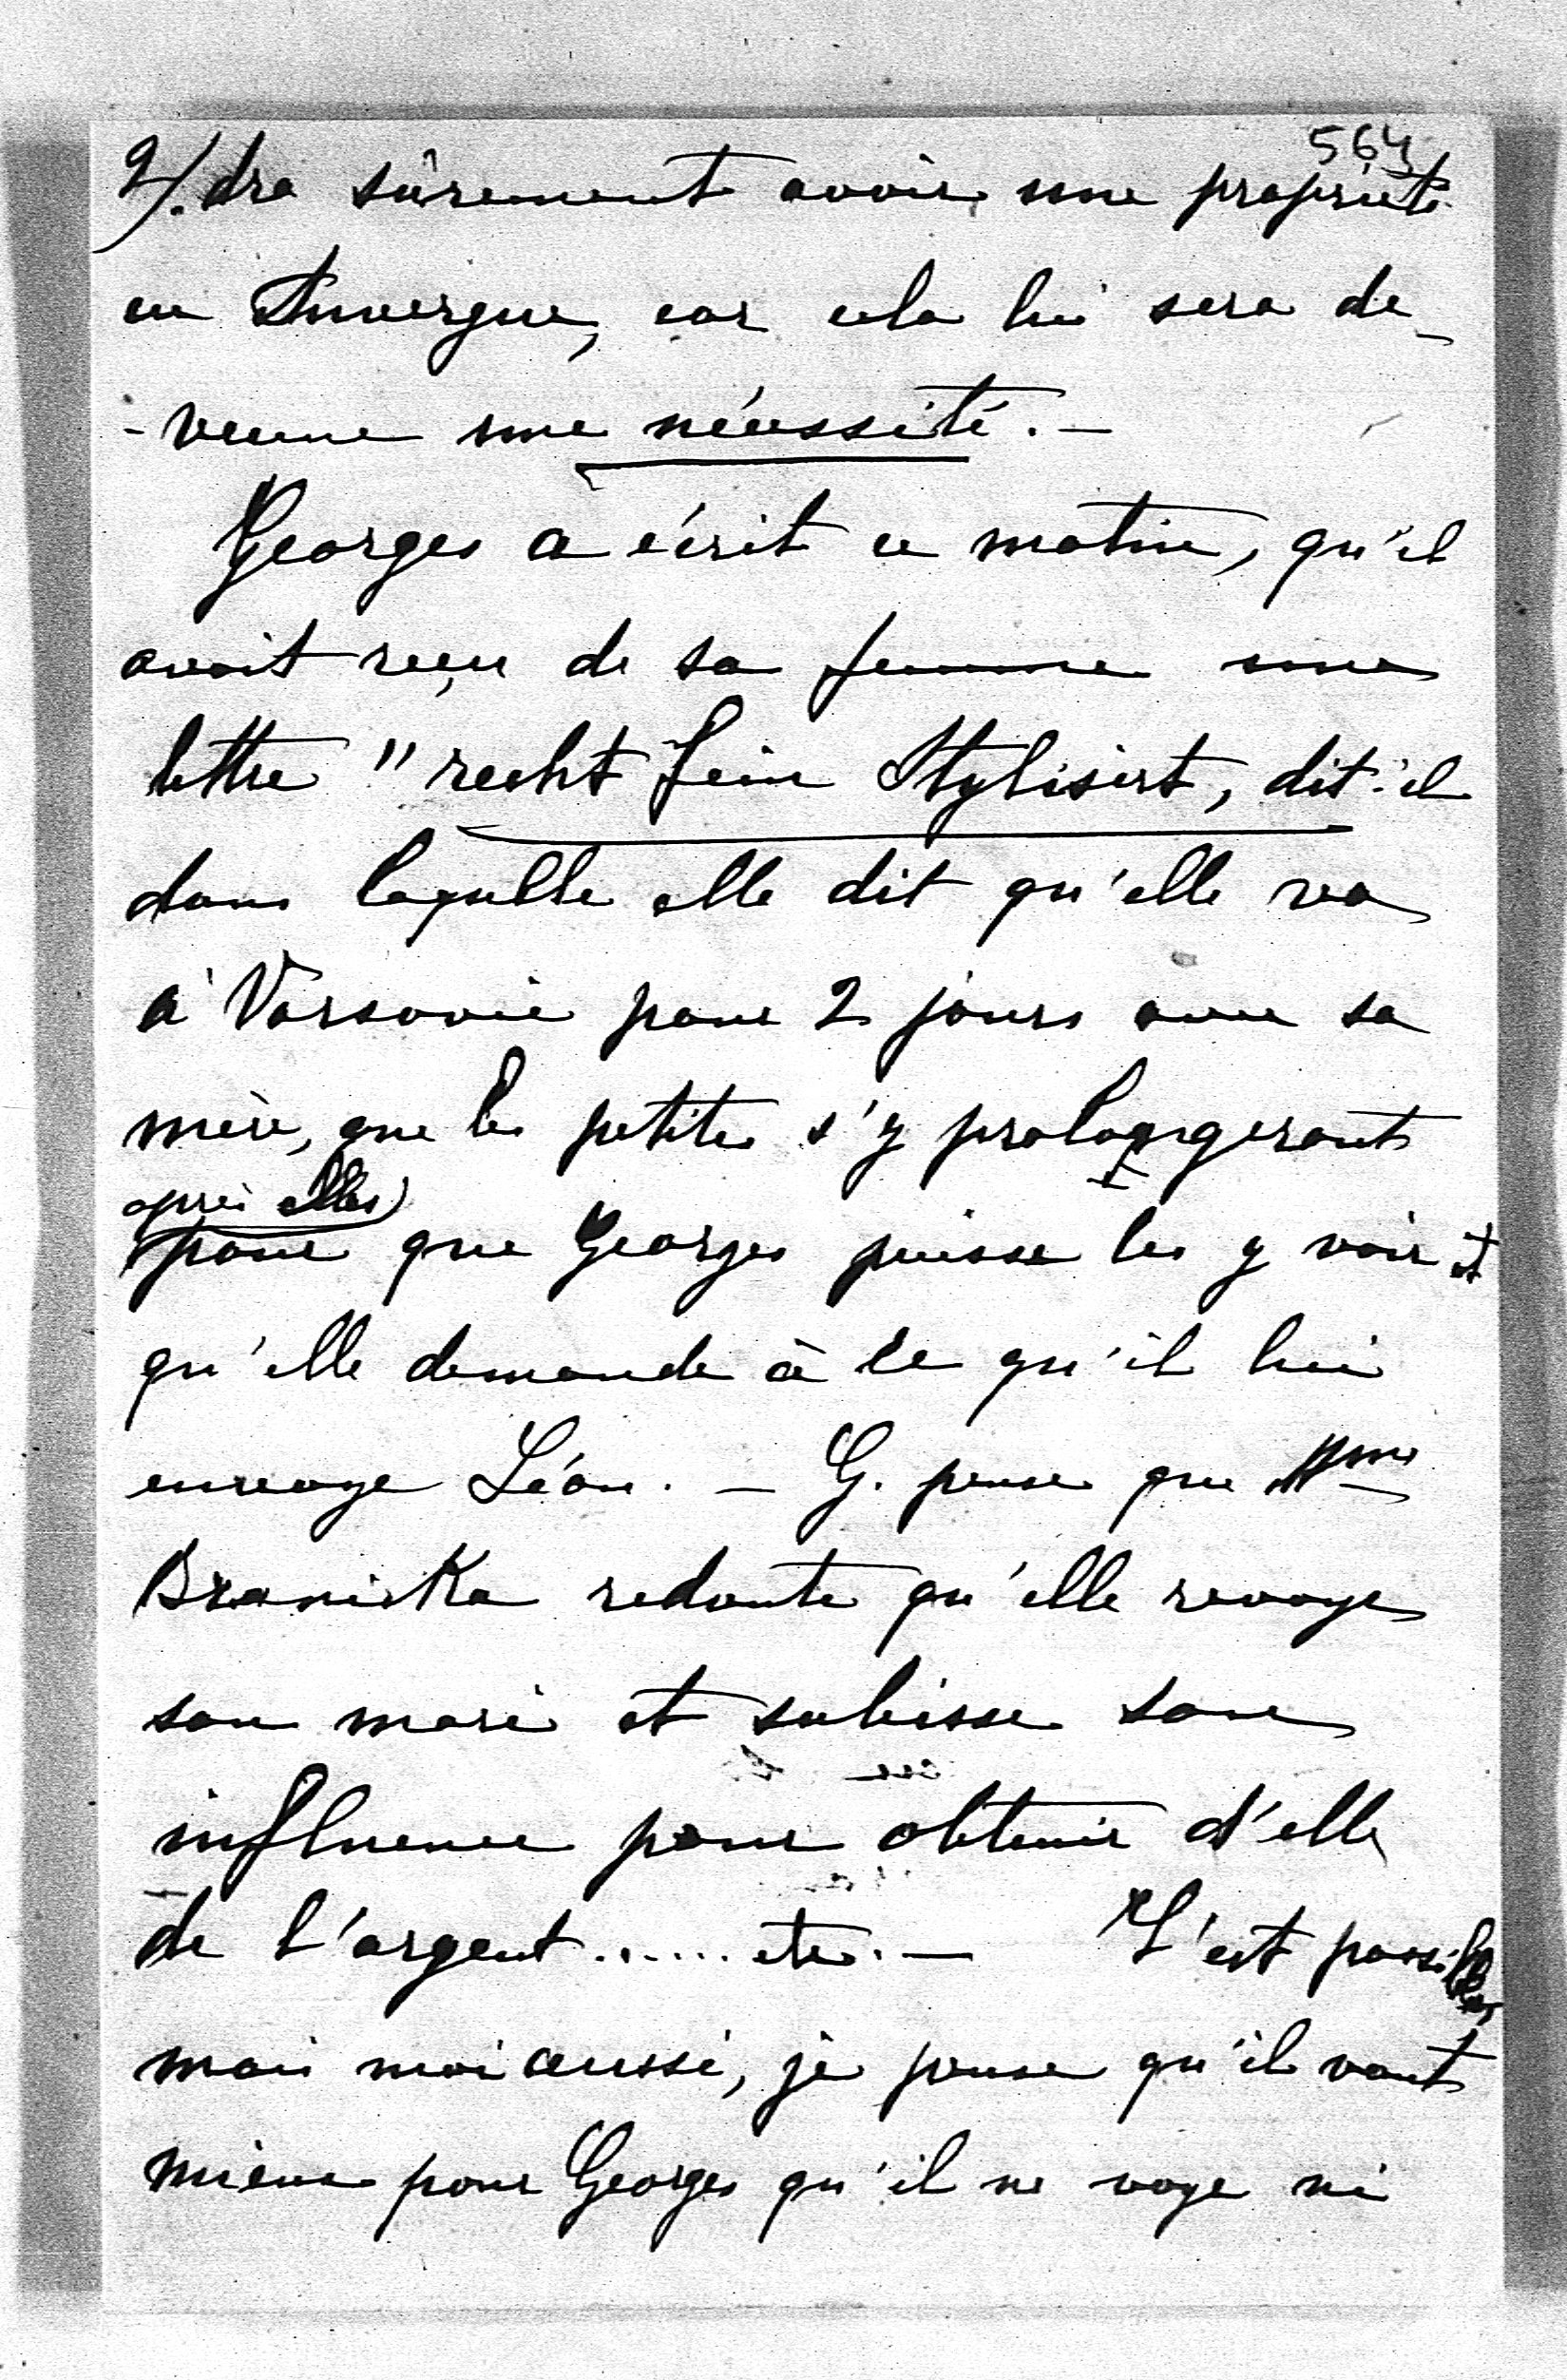 564
2/. dra sûrement avoir une propriété
en Auvergne, car cela lui sera de_
-venue une nécessité. —
Georges a écrit ce matin, qu'il
avait reçu de sa femme une
lettre "recht fein stylisirt, dit-il
dans laquelle elle dit qu'elle va
à Varsovie pour 2 jours avec sa
mère, que les petites s'y prolongeront
après elles
pour que Georges puisse les y voir et
qu'elle demande à ce qu'il lui
envoye Léon. — G. pense que Mme
Braniska redoute qu'elle revoye
son mari et subisse son
influence pour obtenir d'elle
de l'argent......etc. — C'est possible,
mais moi aussi, je pense qu'il vaut
mieux pour Georges qu'il ne voye ni